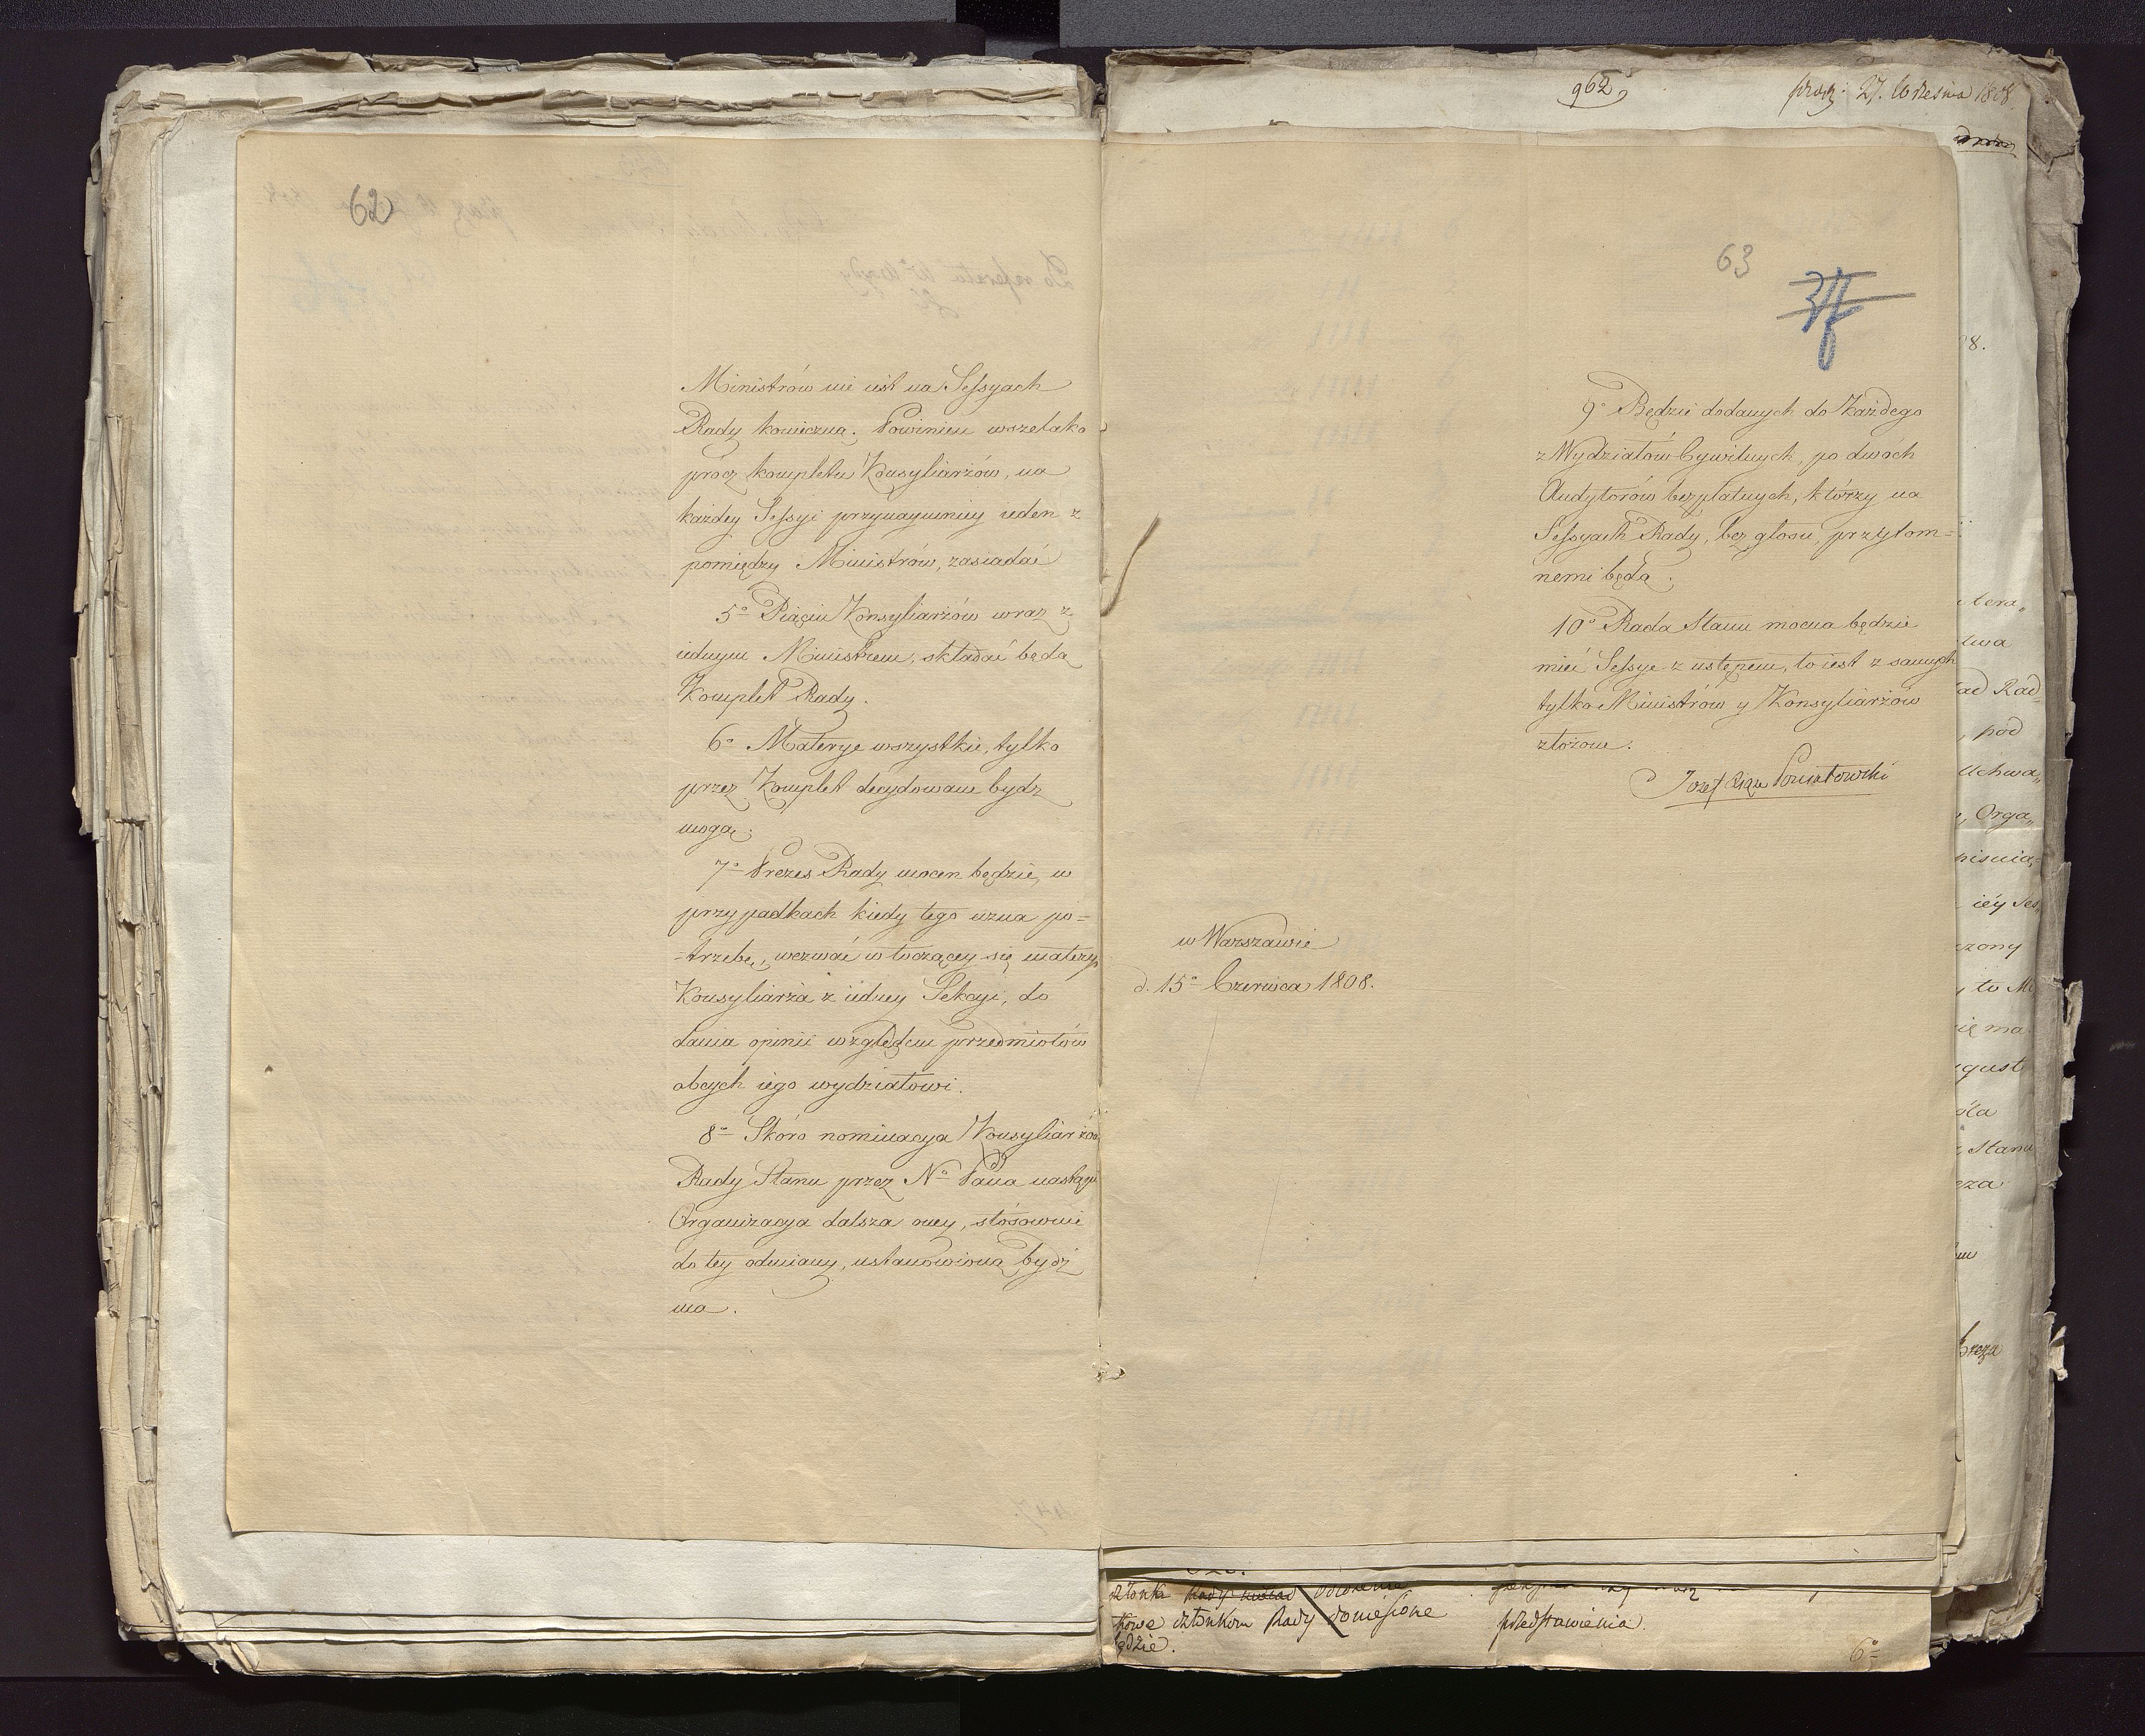 62
Ministrów nie iest na Sessyach
Rady konieczną. Powinien wszelako
prócz kompletu Konsyliarzów, na
każdey Sessyi przynaymniey ieden z
pomiędzy Ministrów, zasiadać
5o Pięciu Konsyliarzów wraz z
iednym Ministrem, składać będą
Komplet Rady.
6o Materye wszystkie, tylko
przez Komplet decydowane bydz
mogą.
7o Prezes Rady mocen będzie, w
przypadkach kiedy tego uzna po=
=trzebę, wezwać w toczącey się materyi
Konsyliarza z iedney Sekcyi, do
dania opinii względem przedmiotów
obcych iego wydziałowi.
8o Skoro nominacya Konsyliarzów
Rady Stanu przez No Pana nastąpi
Organizacya dalsza oney, stósownie
do tey odmiany, ustanowioną bydź
ma.
962
27. Września 1808
63
9o Będzie dodanych do Każdego
z Wydziałów Cywilnych, po dwóch
Audytorów bezpłatnych, którzy na
Sessyach Rady, bez głosu, przytom=
nemi będą.
10o Rada Stanu mocna będzie
mieć Sessye z ustępem, to iest z samych
tylko Ministrów y Konsyliarzów
złożone.
Jozef Xiąże Poniatowski
w Warszawie
d. 15o Czerwca 1808.
08.
tera„
twa
ad Rad=
, pod
Uchwa„
, Orga„
pisuią=
iéy Ses„
czony
, to Mi
ię ma
gust
óla
Stanu
eza
Breza
członka Rady
kowe członkom Rady doniesione
będzie.
przedstawienia.
6o